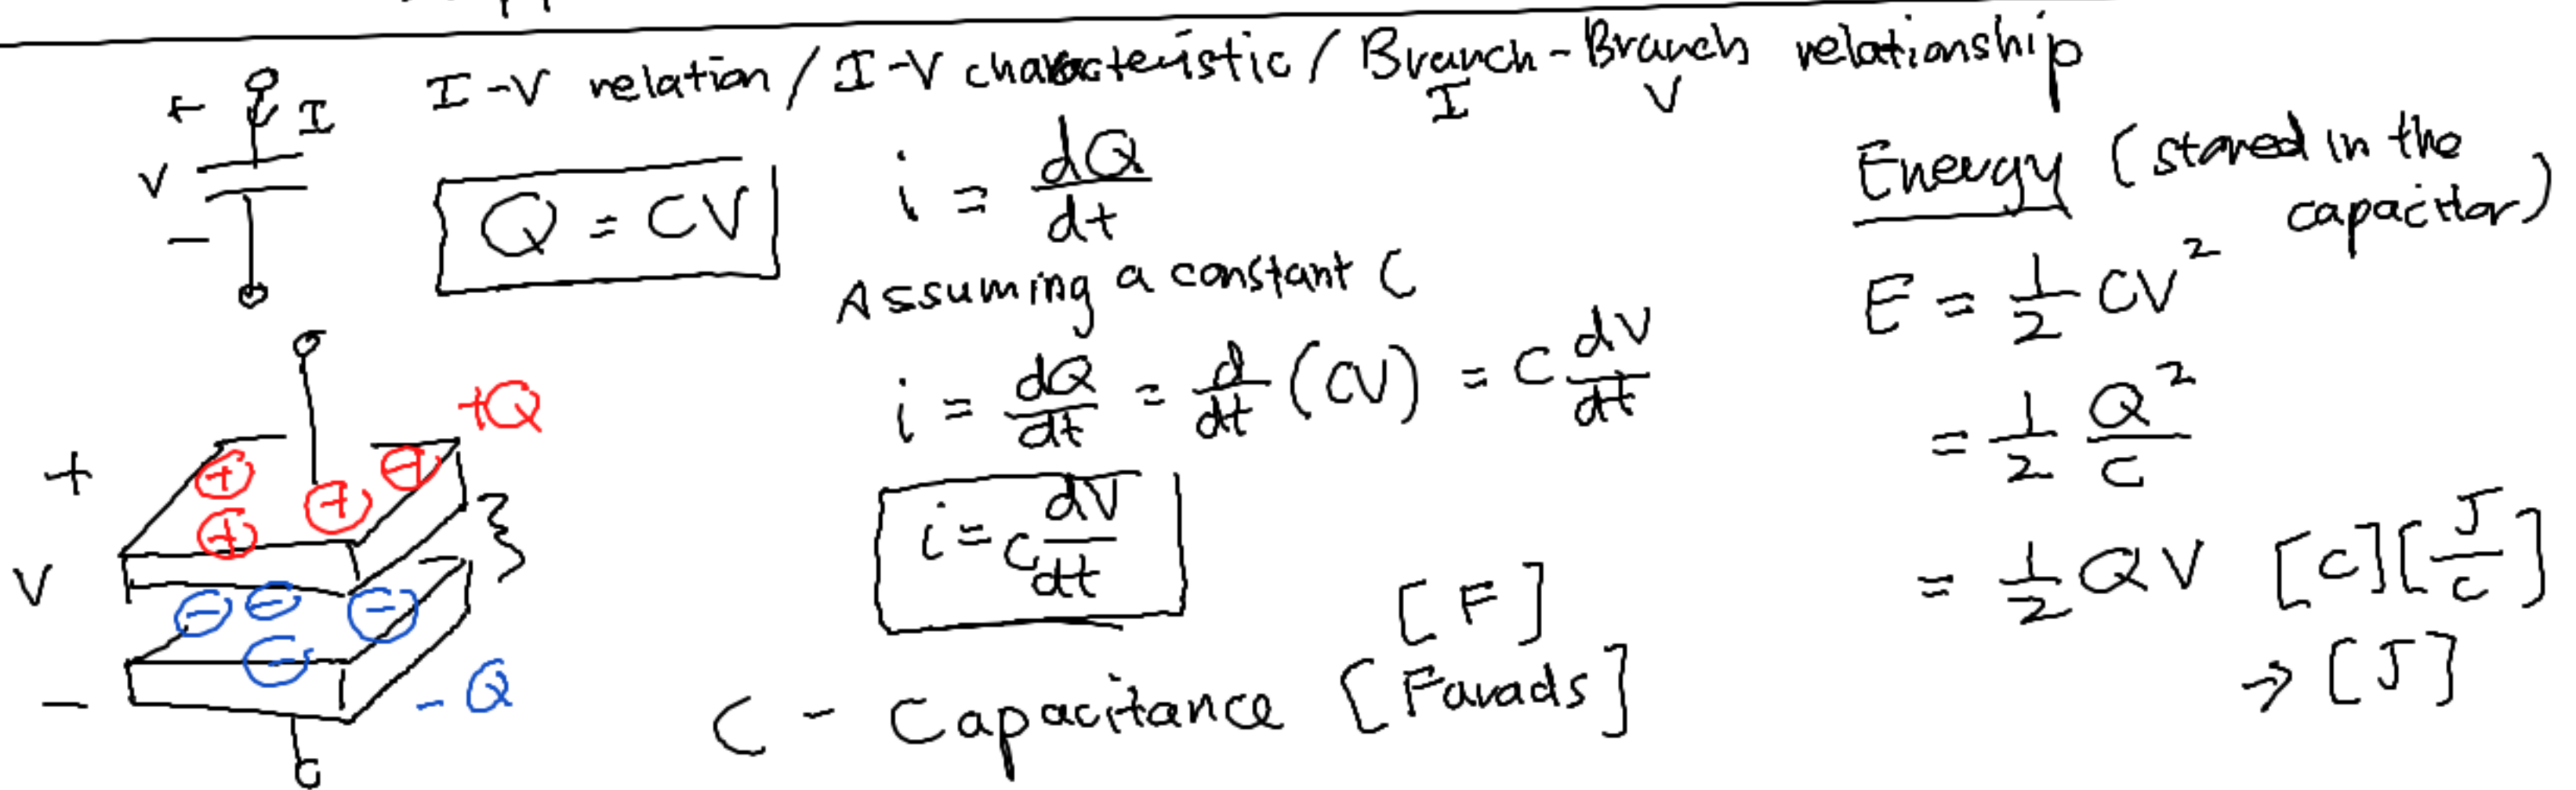 I-V relation / I-V characteristic / Branch-Branch relationship
I V
+ I
V
-
Q = CV
i = dQ/dt
Assuming a constant C
i = dQ/dt = d/dt (CV) = C dV/dt
i = C dV/dt
[F]
C - Capacitance [Farads]
+Q
+ + + +
+
V
- - - -
-
-Q
Energy (stored in the
capacitor)
E = 1/2 CV²
= 1/2 Q²/C
= 1/2 QV [C][J/C]
→ [J]